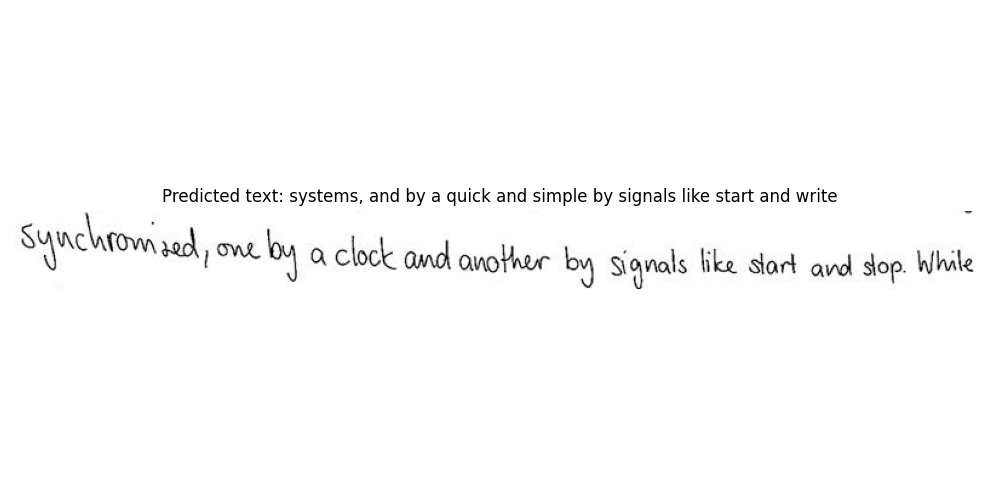 Predicted text: systems, and by a quick and simple by signals like start and write
synchronized, one by a clock and another by signals like start and stop. While